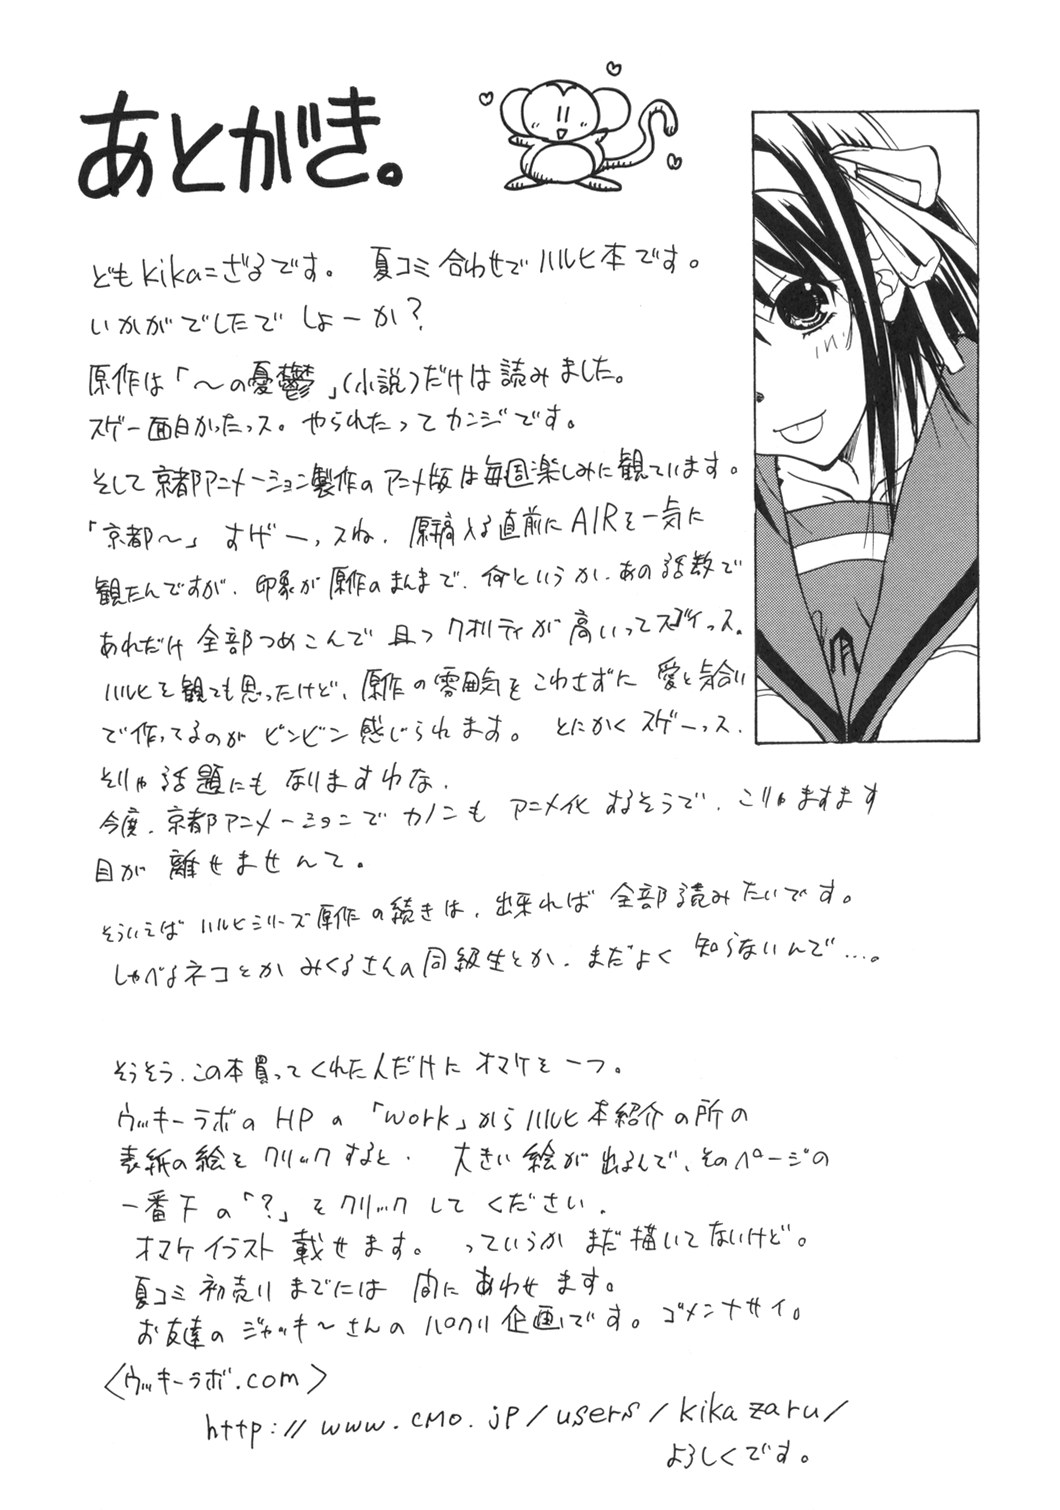 あとがき。
どもkika=ざるです。 夏コミ合わせでハルヒ本です。
いかがでしたでしょーか?
原作は「〜の憂鬱」(小説)だけは読みました。
スゲー面白かったっス。やられたってカンジです。
そして京都アニメーション製作のアニメ版は毎週楽しみに観ています。
「京都〜」すげーっスね、原稿入る直前にAIRを一気に
観たんですが、印象が原作のまんまで、何というか、あの話数で
あれだけ全部つめこんで且つクオリティが高いってスゴイっス。
ハルヒを観ても思ったけど、原作の雰囲気をこわさずに愛と気合い
で作ってるのがビンビン感じられます。 とにかくスゲーっス、
そりゃ話題にもなりますわな、
今度、京都アニメーションでカノンもアニメ化するそうで、こりゃますます
目が離せませんて。
そういえばハルヒシリーズ原作の続きは、出来れば全部読みたいです。
しゃべるネコとかみくるさんの同級生とか、まだよく知らないんで…。
そうそう、この本買ってくれた人だけにオマケを一つ。
ウッキーラボのHPの「work」からハルヒ本紹介の所の
表紙の絵をクリックすると、 大きい絵が出るんで、そのページの
一番下の「?」をクリックしてください、
オマケイラスト載せます。 っていうかまだ描いてないけど。
夏コミ初売りまでには間にあわせます。
お友達のジャッキ〜さんのパクリ企画です。ゴメンナサイ。
〈ウッキーラボ.com〉
http://www.cmo.jp/users/kikazaru/
よろしくです。